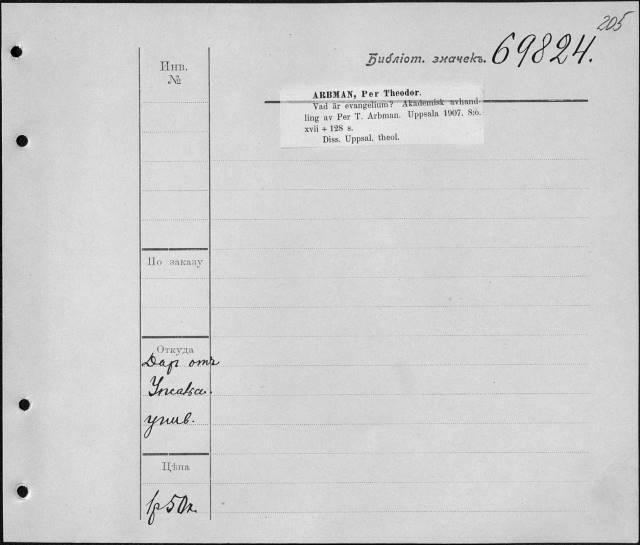 205
Библіот. значекъ. 69824.
Инв.
№
ARBMAN, Per Theodor.
Vad är evangelium? Akademisk avhand-
ling av Per T. Arbman. Uppsala 1907. 8:o.
xvii + 128 s.
Diss. Uppsal. theol.
По заказу
Откуда
Дар отъ
Упсальс.
унив.
Цѣна
1р50к.